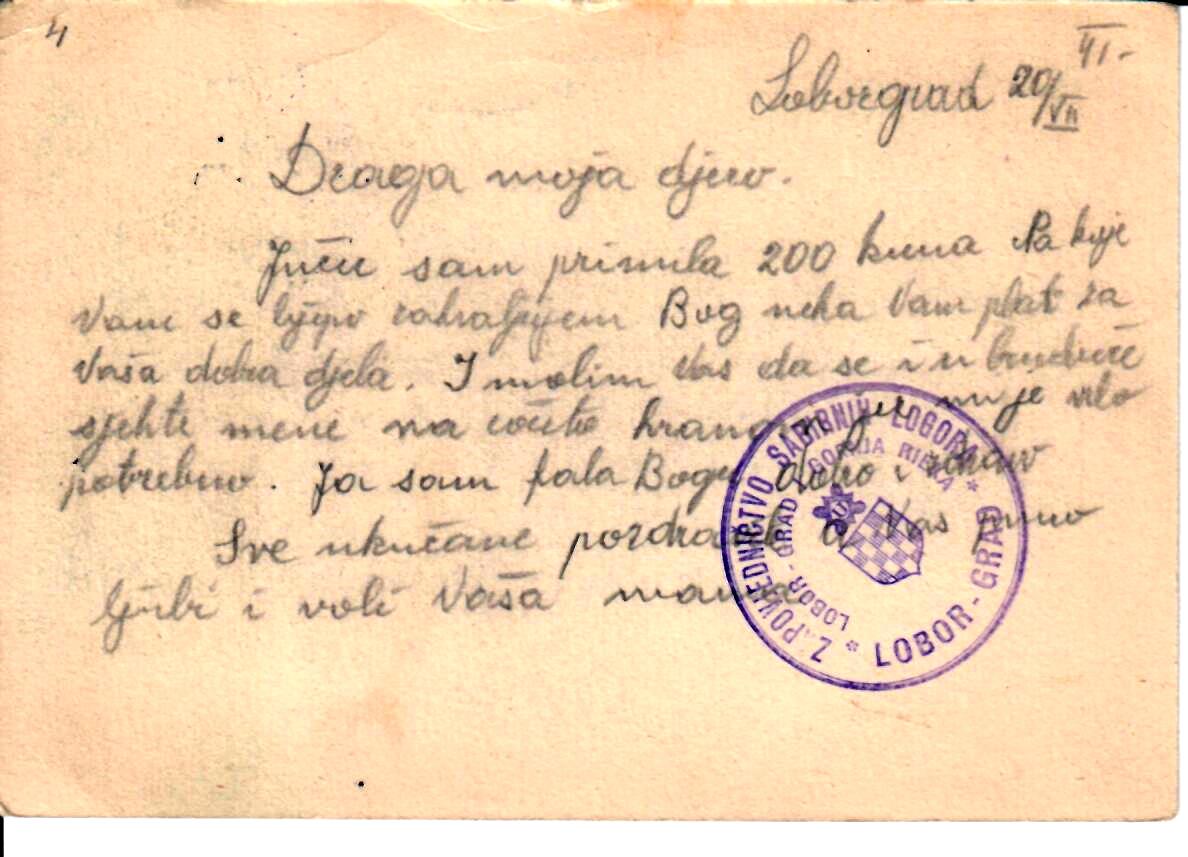 4
Loborgrad 20/VII 41.-
Draga moja djeco.
Jučer sam primila 200 kuna Na koje
Vam se lijepo zahvaljujem Bog neka Vam plati za
Vaša dobra djela. I molim Vas da se i u buduće
sjetite mene na hranom jer mi je vrlo
potrebno. Ja sam fala Bogu dobro i zdravo
Sve ukućane pozdravlja a Vas puno
ljubi i voli Vaša mama
ZAPOVJEDNIČTVO SABIRNIH LOGORA * LOBOR-GRAD *
LOBOR-GRAD I GORNJA RIEKA
U